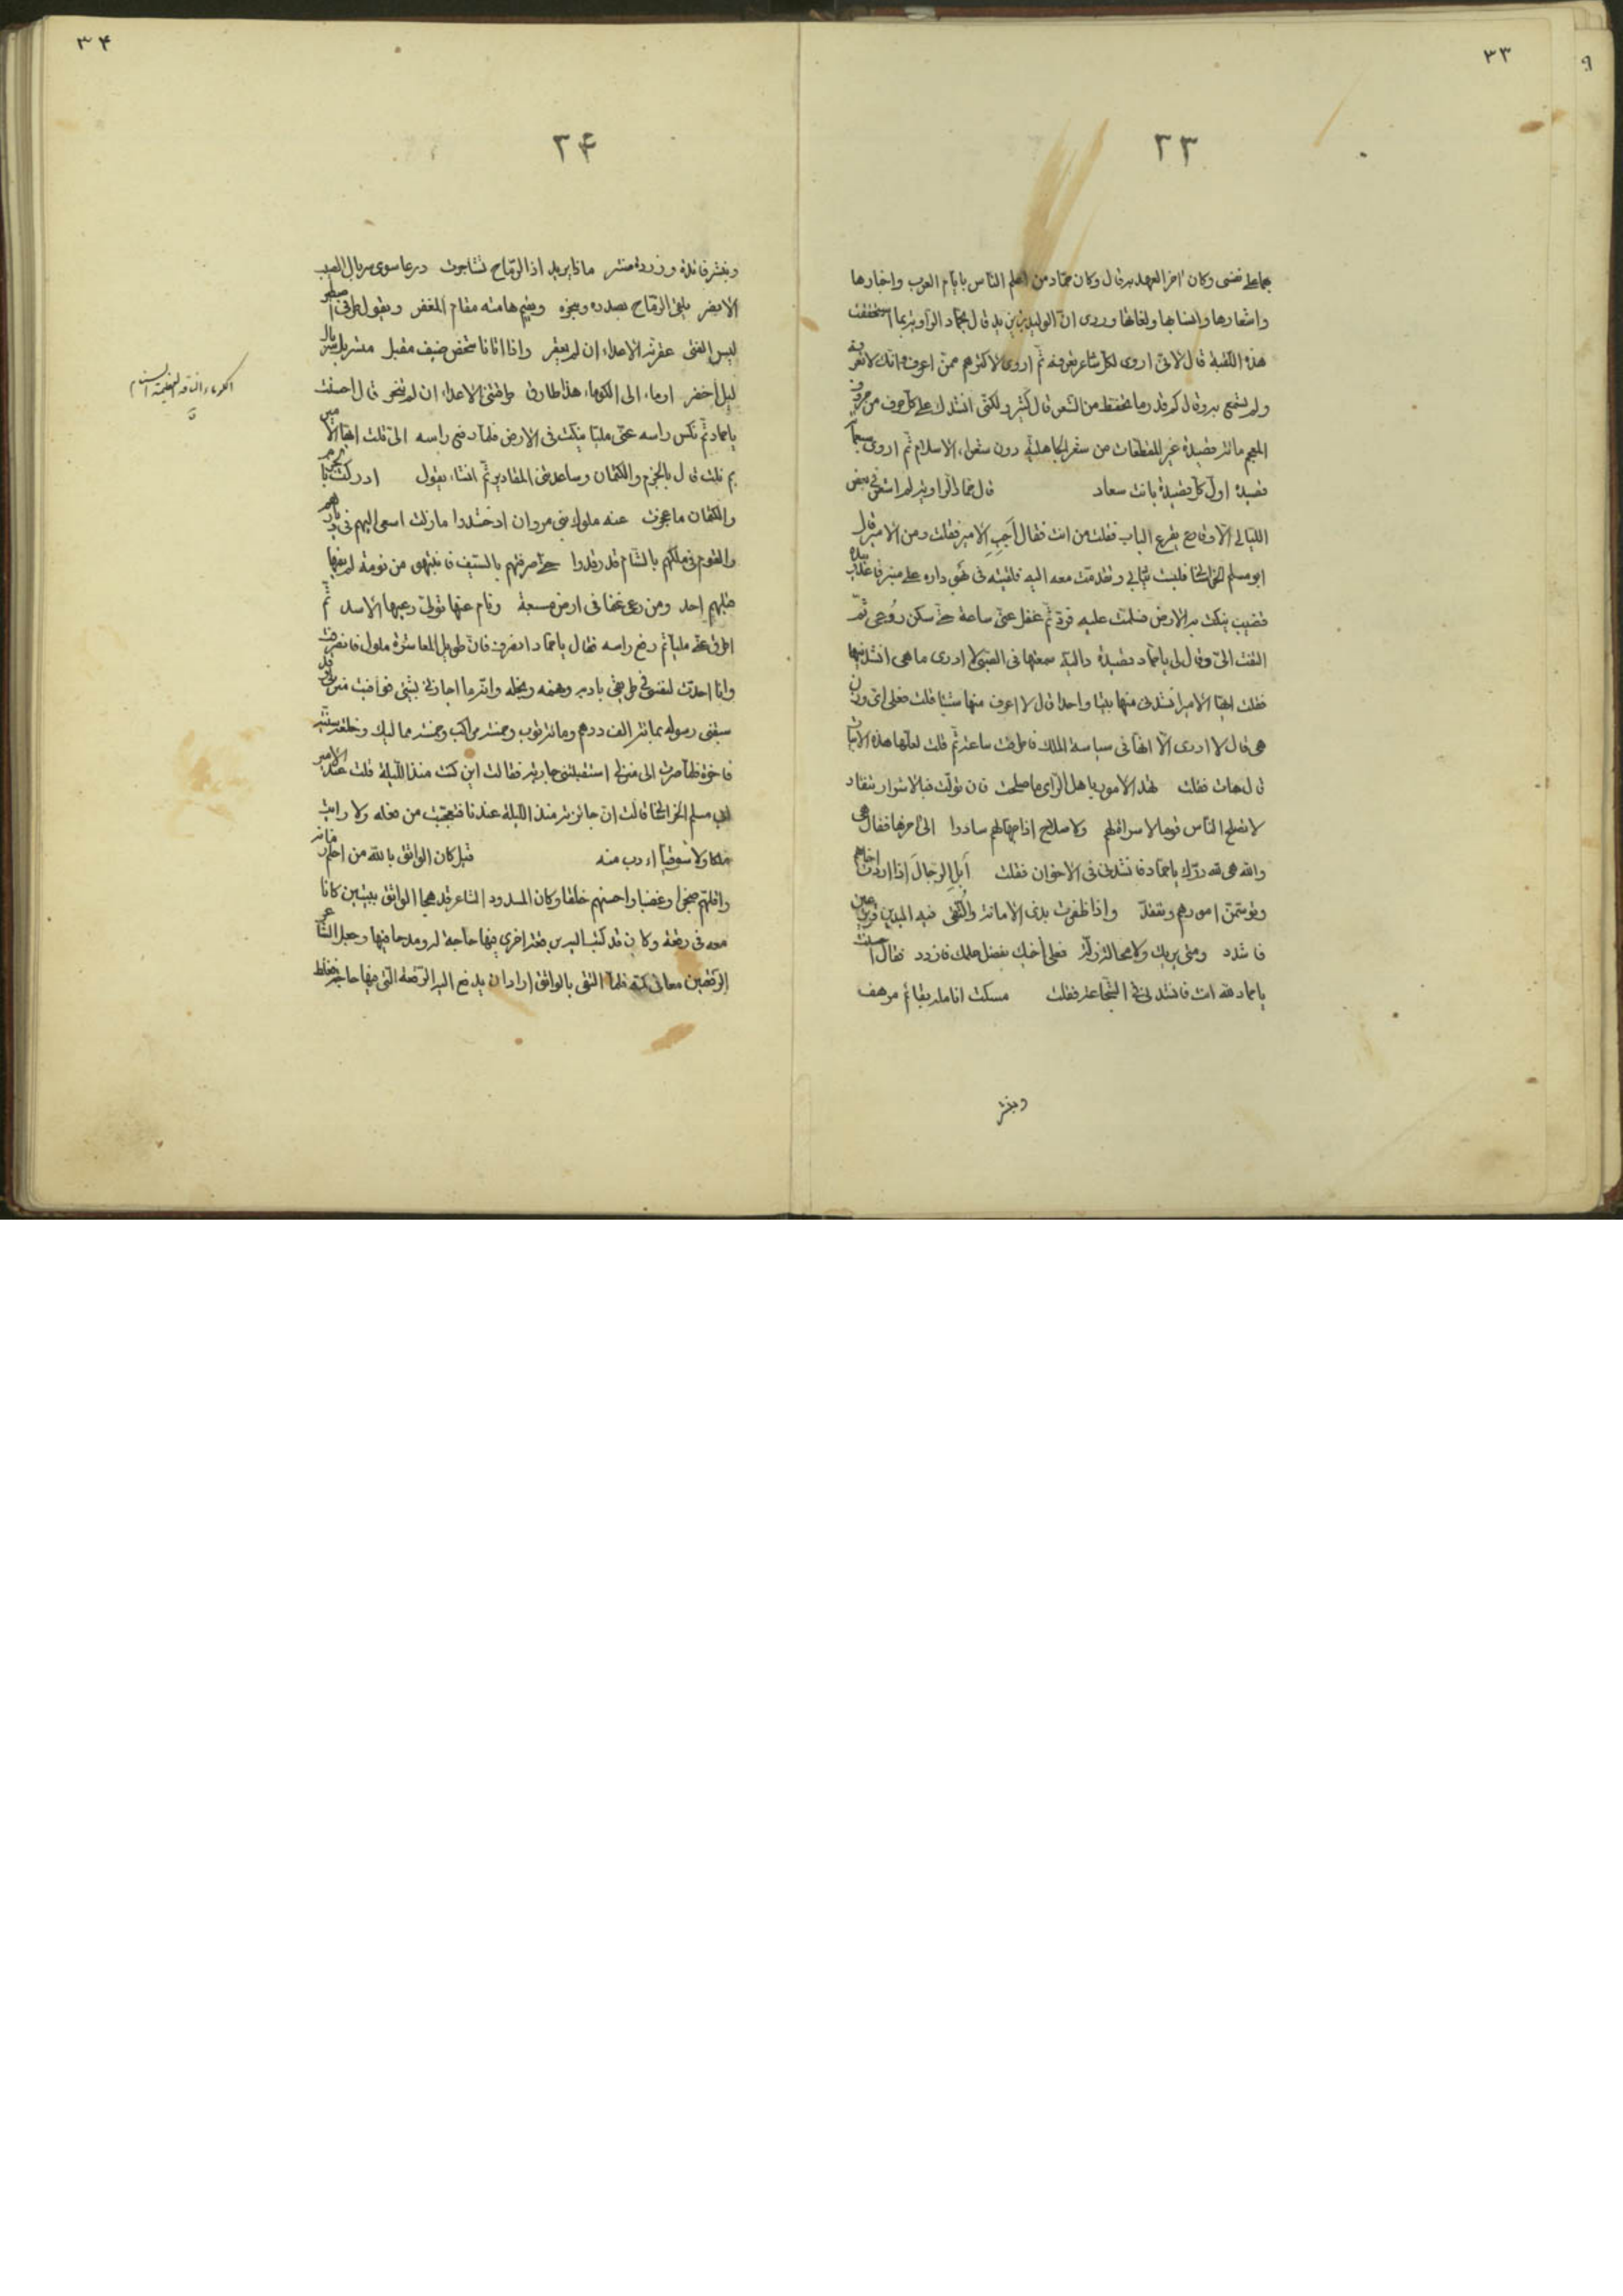 ٩
٣٣
٢٣
بها على نفسى وكان اخر العهد به قال وكان حمّاد من اعلم النّاس بايّام العرب واخبارها
واشعارها وانسابها ولغاتها وروى انّ الوليد بن يزيد قال لحمّاد الرّاوية بما استحققت
هذه الكنية قال لانّى اروى لكلّ شاعر تعرفه ثمّ اروى لاكثرهم ممّن اعرف انّك لا تعرفه
ولم تسمع به وقال كم قدر ما تحفظه من الشّعر قال كثير ولكنّى انشدك على كلّ حرف من حروف
المعجم مائة قصيدة غير المقطّعات من شعر الجاهليّة دون شعراء الاسلام ثمّ اروى
قصيدة اوّل كلّ قصيدة بانت سعاد قال حمّاد الرّاوية لم اشعر فى بعض
اللّيالى الّا وقارع يقرع الباب فقلت من انت فقال اَجِبِ الامير فقلت ومن الامير قال
ابو مسلم الخراسانى فلبست ثيابى وتقدّمت معه اليه فلقيته فى بهو داره على منبر قاعدا بيده
قضيب ينكت به الارض فسلّمت عليه فردّ ثمّ غفل عنّى ساعة حتّى سكن رُوعى ثمّ
التفت الىّ وقال لى يا حمّاد قصيدة داليّة سمعتها فى الصّبى لا ادرى ما هى انشدنيها
فقلت ايّها الامير انشدنى منها بيتا واحدا قال لا اعرف منها شيئا قلت فعلى اىّ وزن
هى قال لا ادرى الّا انّها فى سياسة الملك فاطرقت ساعة ثمّ قلت لعلّها هذه الابيات
قال هات فقلت تهدا الامور باهل الرّاى ما صلحت فان تولّت فبالاشرار تنقاد
لا تصلح النّاس فوضى لا سراة لهم ولا صلاح اذا جهّالهم سادوا الى اخرها فقال هى
والله هى لله درّك يا حمّاد فانشدنى فى الاخوان فقلت اُبلُ الرّجالَ اذا اردت اخاهم
وتوسّمنّ امورهم وتفقّد واذا ظفرت بذى الامانة والتُّقى فبه اليدين قرير عين
فاشدد ومتى يزلّ ولا محالة زلّة فعلى اخيك بفضل حلمك فازدد فقال احسنت
يا حمّاد لله انت فانشدنى فى الشّجاعة فقلت مسكت انامله بقائم مرهف
وبنشر
٣٤
٢٤
وبنشر فائدة وذروة منبر ماذا يريد اذا الرّماح تشاجرت درعا سوى سربال الطيب
الاعنبر يلقى الرّماح بصدره وبنحره ويقيم هامته مقام المغفر ويقول للطّرف اصطبر
لبس الفتى عقرته الاعداء ان لم يعقر واذا اتانا شخص ضيف مقبل متسربل سربال
ليل اخضر اوماء الى الكوماء هذا طارق الاعداء ان لم تنحر قال احسنت
يا حمّاد ثمّ نكس راسه عنّى مليّا ينكت فى الارض فلمّا رفع راسه الىّ قلت ايّها الامير
بم نلت قال بالحزم والكتمان وساعدنى المقادير ثمّ انشاء يقول ادركت بالحزم
والكتمان ما عجزت عنه ملوك بنى مروان اذ حشدوا ما زلت اسعى اليهم فى ديارهم
والقوم فى ملكهم بالشّام قد رقدوا حتّى ضربتهم بالسّيف فانتبهوا من نومة لم ينمها
قبلهم احد ومن رعى غنما فى ارض مسبعة ونام عنها تولّى رعيها الاسد ثمّ
اطرق عنّى مليّا ثمّ رفع راسه فقال يا حمّاد انصرف فانّ طويل المعاشرة ملول فانصرفت
وانا احدّث لنفسى فى طريقى بادبه وفهمه وبخله وانّه ما اجازنى بشىء فوافيت منزلى وقد
سبقنى رسوله بمائة الف درهم ومائة ثوب وخمسة مراكب وخمسة مماليك وخلعة سنيّة
فاخرة فلمّا صرت الى منزلى استقبلتنى جارية فقالت اين كنت منذ اللّيلة قلت عند الامير
ابى مسلم الخراسانى قالت انّ جائزته منذ اللّيلة عندنا فتعجّبت من فعله ولا رايت
ملكا ولا سوقيّا ادب منه قيل كان الواثق بالله من احلم زمانه
واقلّهم ضجرا وغضبا واحسنهم خلقا وكان المسدود الشاعر قد هجا الواثق ببيتين كانا
معه فى رقعة وكان قد كتب اليه رقعة اخرى فيها حاجة له ومدحا فيها وجعل الشّاعر
الرّقعتين معا فى كمّه فلمّا التقى بالواثق اراد ان يدفع اليه الرّقعة الّتى فيها حاجة فغلط
الكوماء النّاقة العظيمة السنام